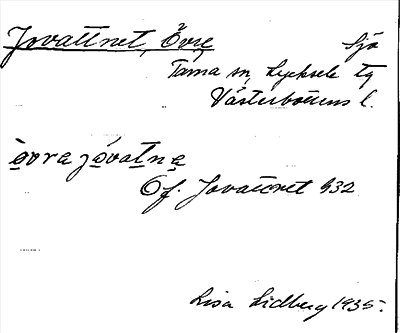 Jovattnet, Övre Sjö
Tärna sn, Lycksele tg
Västerbottens l.
òvra jóvatnẹ
Öf. Jovattnet G32
Lisa Lidberg 1935.